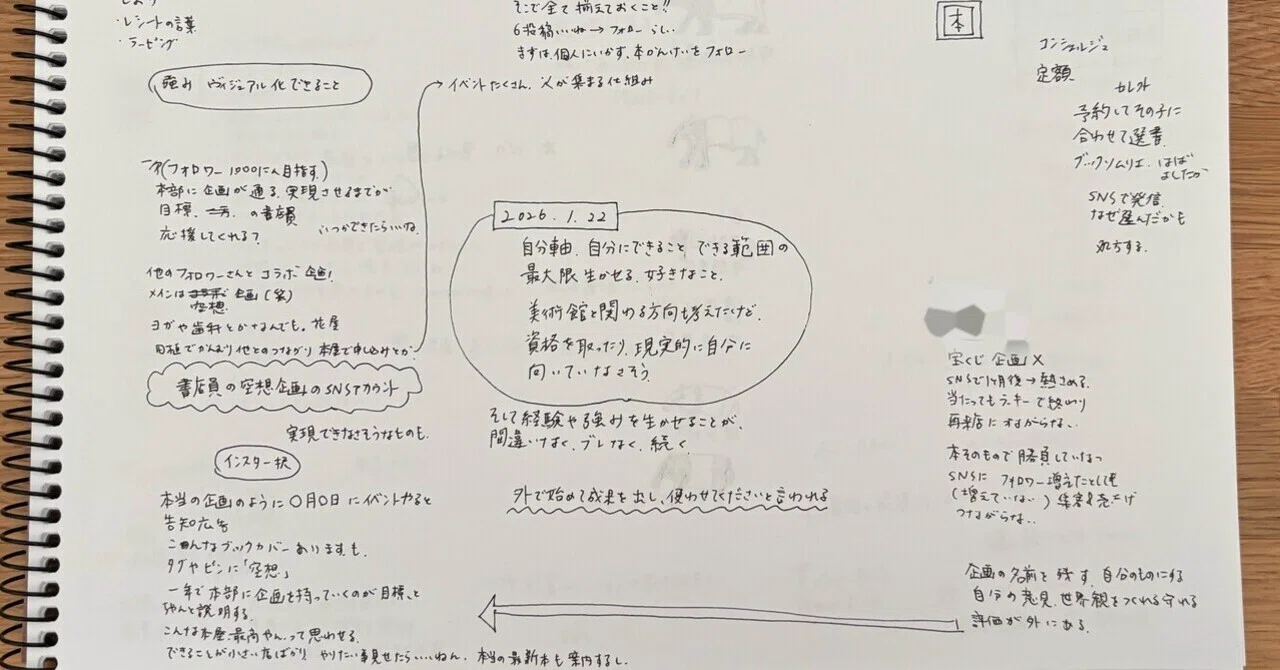 ・レシートの言葉
・ラッピング
強み ヴィジュアル化できること
一年(フォロワー1000人目指す)
本部に企画が通る、実現させるまでが
目標、の書店員
応援してくれる?
いつかできたらいいね
他のフォロワーさんとコラボ企画!
メインは空想企画(笑)
ヨガや歯科とかなんでも。花屋
他とのつながり 本屋で申し込みとか
書店員の空想企画のSNSアカウント
実現できなさそうなものも。
インスタ一択
本当の企画のように〇月〇日にイベントやると
告知広告
こんなブックカバーありますも。
タグやピンに「空想」
一年で本部に企画を持っていくのが目標、と
ちゃんと説明する。
こんな本屋、最高やん。って思わせる。
できることが小さい店ばかり やりたい事見せたらいいねん。本当の最新本も案内するし。
そこで全て揃えておくこと!!
6投稿いいね→フォローらしい
まずは個人にいかす、本かんけいをフォロー
イベントたくさん、人が集まる仕組み
2026.1.22
自分軸、自分にできること、できる範囲の
最大限生かせる、好きなこと、
美術館と関わる方向も考えたけど、
資格を取ったり、現実的に自分に
向いていなさそう。
そして経験や強みを生かせることが、
間違いなく、ブレなく、続く
外で始めて成果を出し、使わせてくださいと言われる
本
コンシェルジュ
定額
セレクト
予約してその子に
合わせて選書
ブックソムリエ、はば
よしたか
SNSで発信
なぜ選んだかも
宝くじ企画×
SNSで1ヶ月後→熱さめる、
当たってもラッキーで終わり
再来店につながらな、、
本そのもので勝負していなっ
SNSにフォロワー増えたとしても
(増えていない)集客&売上げ
つながらな、、
企画の名前を残す、自分のものにする
自分の意見、世界観をつくれる守れる
評価が外にある。